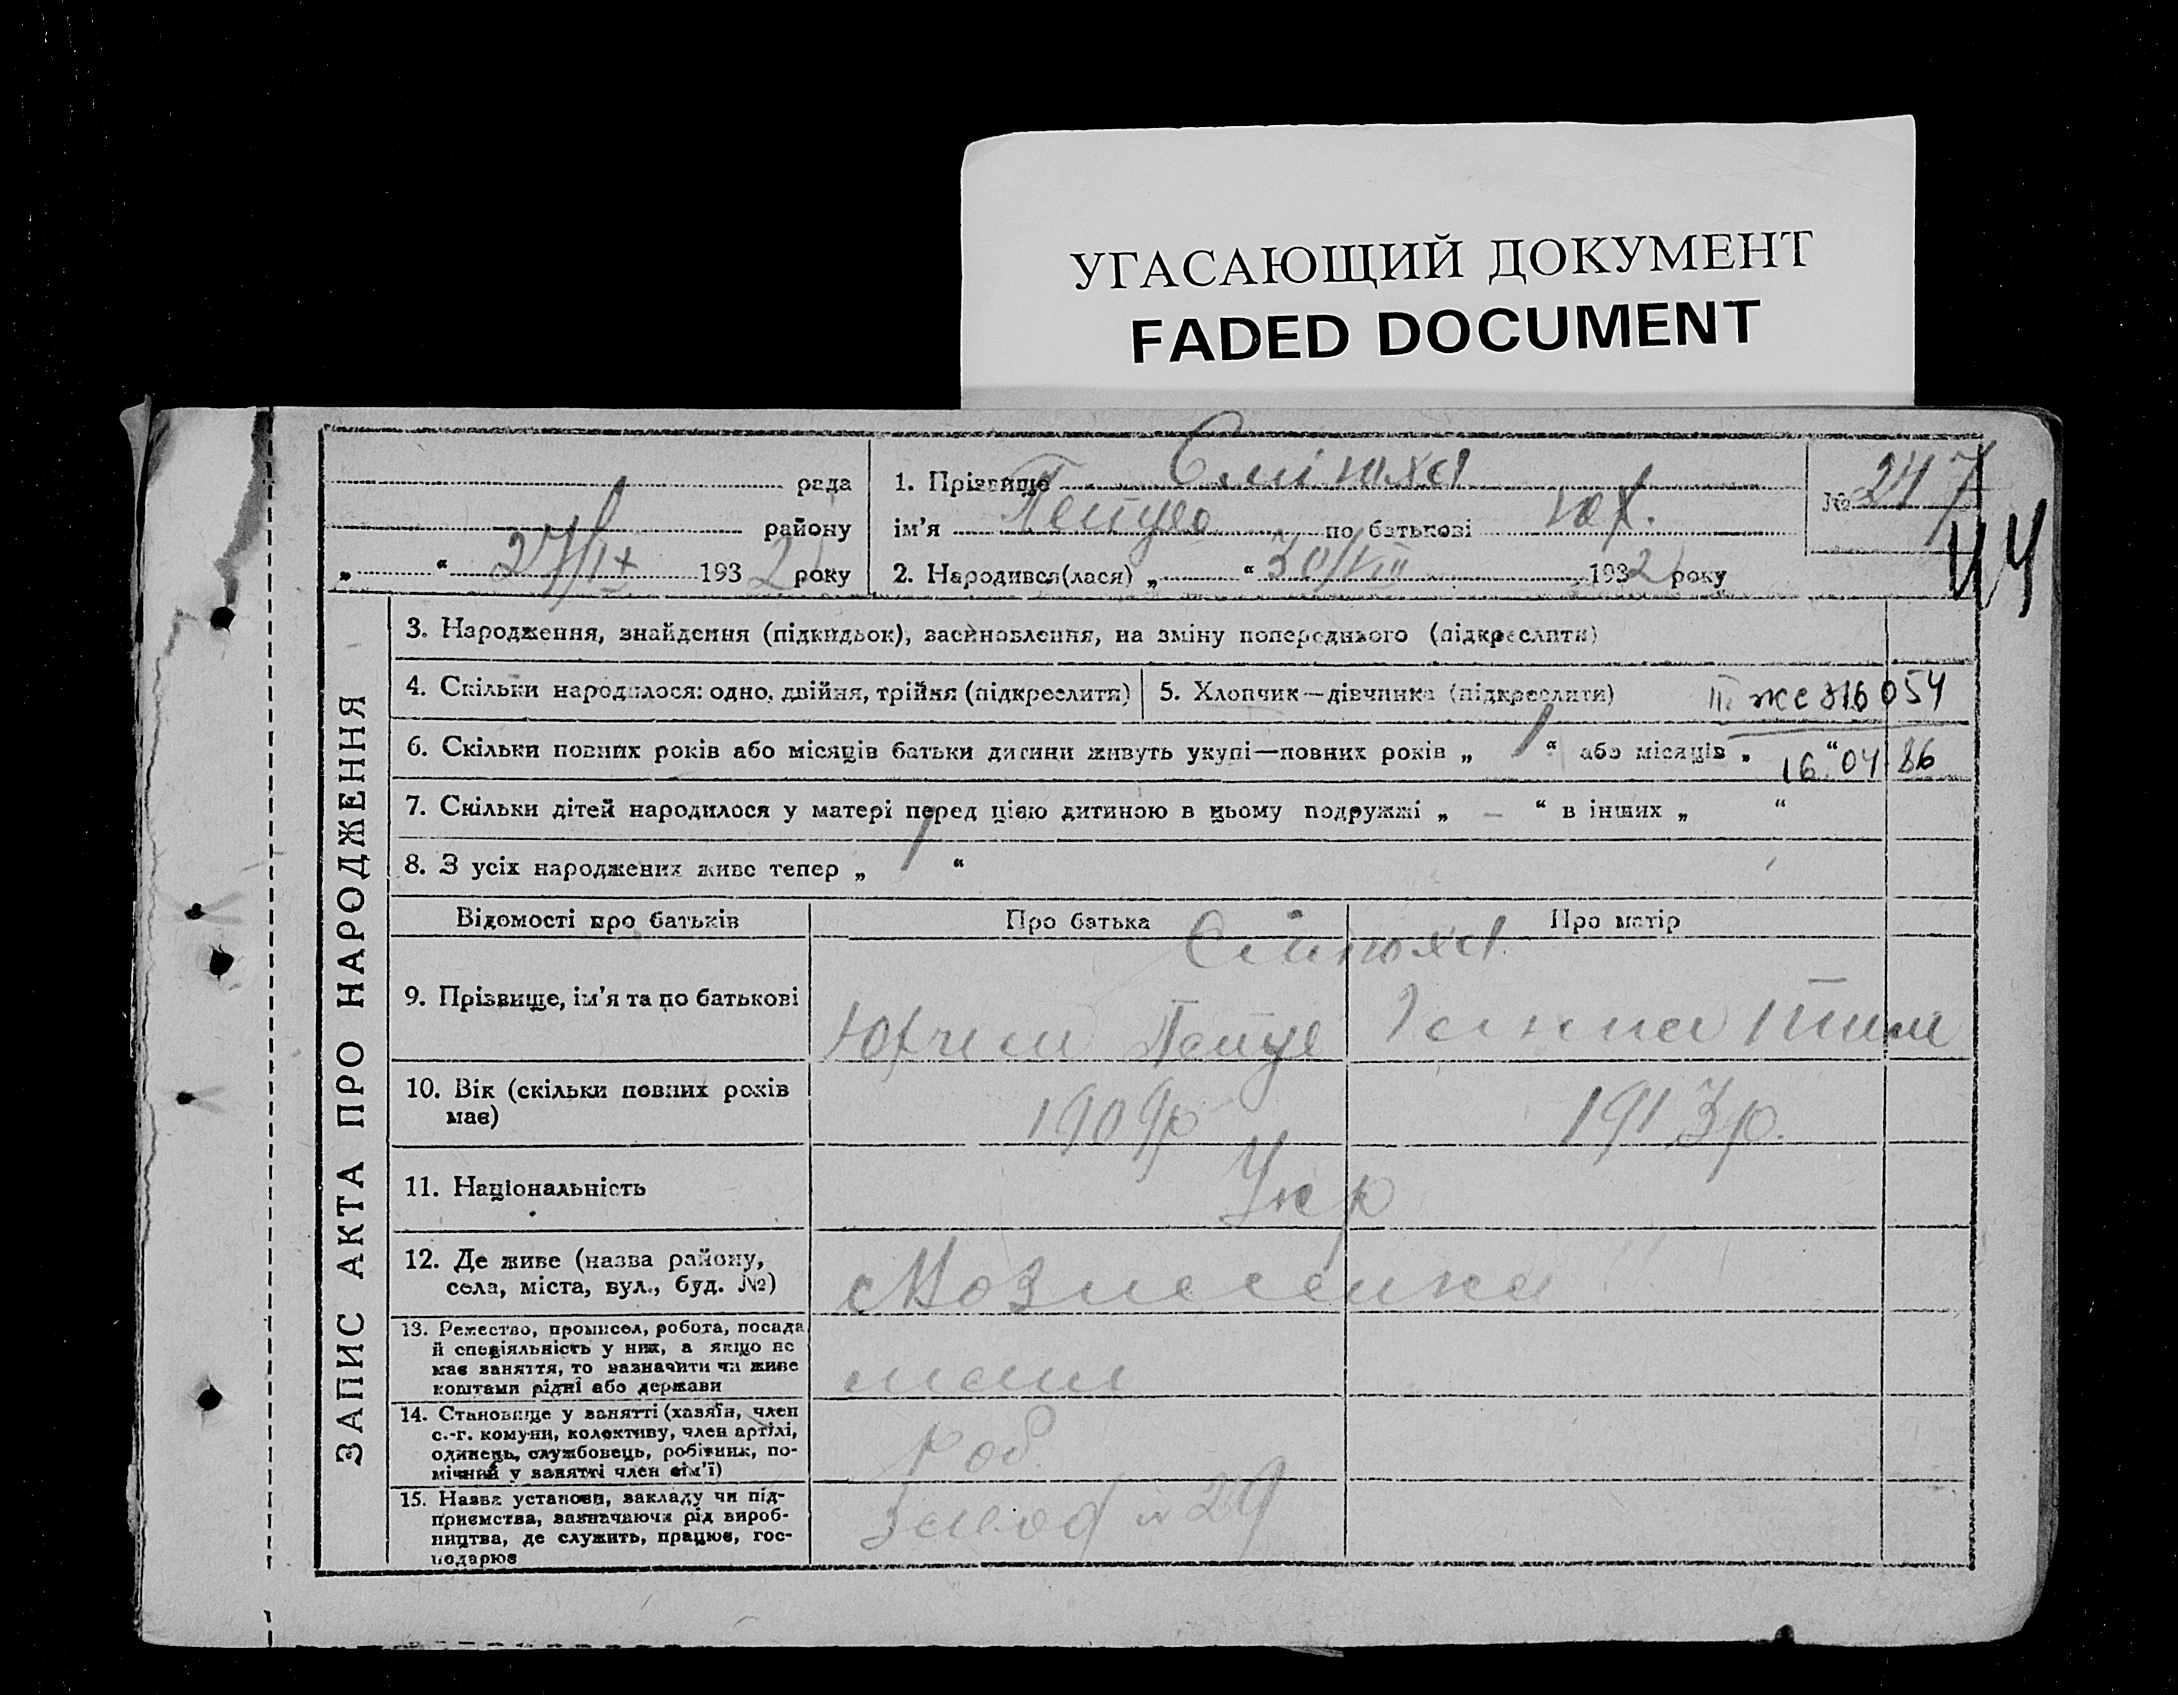 УГАСАЮЩИЙ ДОКУМЕНТ
FADED DOCUMENT
ЗАПИС АКТА ПРО НАРОДЖЕННЯ
рада
району
„ “ 27/IX 1932 року
1. Прізвище
ім'я по батькові Юх.
2. Народився(лася) „ “ 30/VIII 1932 року
№ 247
44
3. Народження, знайдення (підкидьок), засиновлення, на зміну попереднього (підкреслити)
4. Скільки народилося: одно, двійня, трійня (підкреслити)
5. Хлопчик—дівчинка (підкреслити)
III жс 316054
6. Скільки повних років або місяців батьки дитини живуть укупі—повних років „ 1 “ або місяців „ “
16 04 86
7. Скільки дітей народилося у матері перед цією дитиною в цьому подружжі „ – “ в інших „ “
8. З усіх народжених живе тепер „ 1 “
Відомості про батьків
Про батька
Про матір
9. Прізвище, ім'я та по батькові
10. Вік (скільки повних років
має)
1909р
1913р.
11. Національність
Укр
12. Де живе (назва району,
села, міста, вул., буд. №)
с Вознесенка
13. Ремество, промисел, робота, посада
й спеціяльність у них, а якщо не
має заняття, то зазначити чи живе
коштами рідні або держави
14. Становище у занятті (хазяїн, член
с.-г. комуни, колективу, член артілі,
одинець, службовець, робітник, по-
мічний у занятті член сім'ї)
роб
15. Назва установи, закладу чи під-
приємства, зазначаючи рід вироб-
ництва, де служить, працює, гос-
подарює
Завод № 29